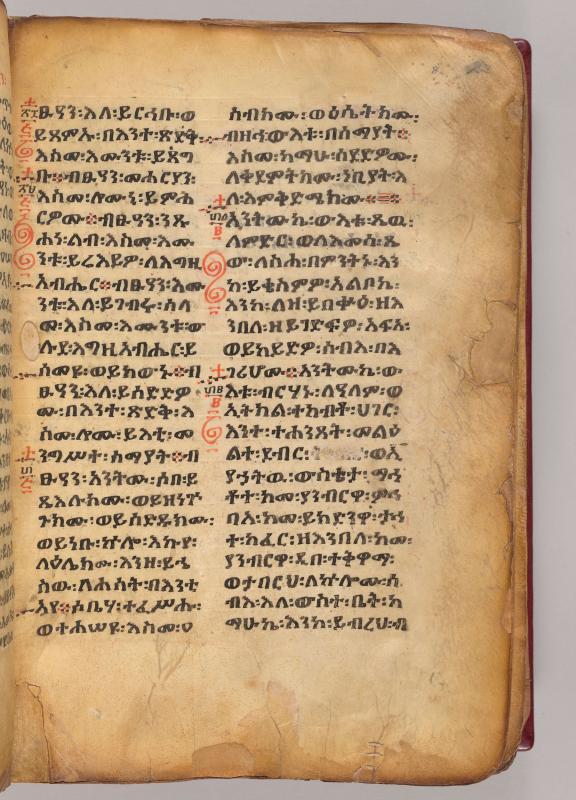 ፁዓን፡እለ፡ይርኅቡ፡ወ
ይጸምኡ፡በእንተ፡ጽድቅ፡
እስመ፡እሙንቱ፡ይጸግ
ቡ፨ብፁዓን፡መሐርያን፡
እስመ፡ሎሙኒ፡ይምሕ
ርዎሙ፨ብፁዓን፡ንጹ
ሐነ፡ልብ፡እስመ፡እሙ
ንቱ፡ይሬእይዎ፡ለእግዚ
አብሔር፨ብፁዓን፡እሙ
ንቱ፡እለ፡ይገብሩ፡ሰላ
መ፡እስመ፡እሙንቱ፡ው
ሉደ፡እግዚአብሔር፡ይ
ሰመዩ፡ወይከውኑ፨ብ
ፁዓን፡እለ፡ይሰድድዎ
ሙ፡በእንተ፡ጽድቅ፡እ
ስመ፡ሎሙ፡ይእቲ፡መ
ንግሥተ፡ሰማያት፨ብ
ፁዓን፡አንትሙ፡ሶበ፡ይ
ጼእሉክሙ፡ወይዘነጕ
ጉክሙ፡ወይሰድዱክሙ፡
ወይነቡ፡ኵሎ፡እኪየ፡
ላዕሌክሙ፡እንዘ፡ይሔ
ስዉ፡በሐሰት፡በእንቲ
አየ፨ሶቤሃ፡ተፈሥሑ፡
ወተሐሠዩ፡እስመ፡ዐ
ስብክሙ፡ወዕሴትክሙ፡
ብዙኅ፡ውእቱ፡በሰማያት፨
እስመ፡ከማሁ፡ሰደድዎሙ፡
ለቀደምትክሙ፡ነቢያት፡እ
ለ፡እምቅድሜክሙ፨
አንትሙኬ፡ውእቱ፡ጼዉ፡
ለምድር፡ወለእመሰ፡ጼ
ው፡ለስሐ፡በምንትኑ፡እን
ከ፡ይቄስምዎ፡አልቦኬ፡
እንከ፡ለዘ፡ይበቍዕ፡ዘእ
ንበለ፡ዘይገድፍዎ፡አፍአ፡
ወይከይድዎ፡ሰብእ፡በእ
ገሪሆሙ፨አንትሙኬ፡ው
እቱ፡ብርሃኑ፡ለዓለም፡ወ
ኢትክል፡ተከብት፡ሀገር፡
እንተ፡ተሐንጸት፡መልዕ
ልተ፡ደብር፡ ፡ወኢ
ያኅትዉ፡ውስቴታ፡ማኅ
ቶተ፡ከመ፡ያንብርዋ፡ምኅ
ባእ፡ከመ፡ይከድንዋ፡ታኅ
ተ፡ከፈር፡ዘእንበለ፡ከመ፡
ያንብርዋ፡ዲበ፡ተቅዋማ፡
ወታበርህ፡ለኵሎሙ፡ሰ
ብእ፡እለ፡ውስተ፡ቤት፡ከ
ማሁኬ፡እንከ፡ይብረህ፡ብ